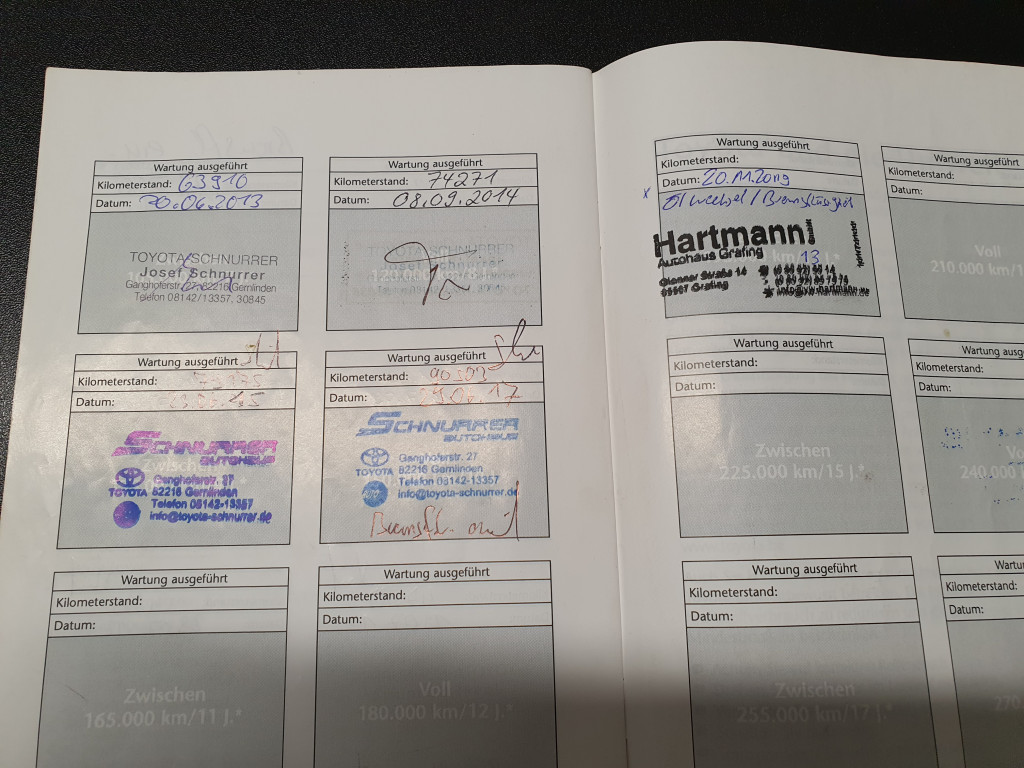 Wartung ausgeführt
Kilometerstand: 63910
Datum: 20.06.2013
TOYOTA SCHNURRER
Josef Schnurrer
Ganghoferstr. 27, 82216 Gernlinden
Telefon 08142/13357, 30845
Wartung ausgeführt
Kilometerstand: 74271
Datum: 08.09.2014
TOYOTA SCHNURRER
Josef Schnurrer
Wartung ausgeführt
Kilometerstand:
Datum: 20.11.2019
Ölwechsel / Bremsflüssigkeit
Hartmann
Autohaus Grafing
13
Glonner Straße 14
85567 Grafing
info@vw-hartmann.de
Wartung ausgeführt
Kilometerstand:
Datum:
Voll
210.000 km/1
Wartung ausgeführt
Kilometerstand:
Datum:
SCHNURRER
AUTOHAUS
Ganghoferstr. 27
TOYOTA 82216 Gernlinden
Telefon 08142-13357
info@toyota-schnurrer.de
Wartung ausgeführt
Kilometerstand: 90503
Datum:
SCHNURRER
AUTOHAUS
Ganghoferstr. 27
TOYOTA 82216 Gernlinden
Telefon 08142-13357
info@toyota-schnurrer.de
Bremsfl.
Wartung ausgeführt
Kilometerstand:
Datum:
Zwischen
225.000 km/15 J.*
Wartung ausg
Kilometerstand:
Datum:
Vo
240.000
Wartung ausgeführt
Kilometerstand:
Datum:
Zwischen
165.000 km/11 J.*
Wartung ausgeführt
Kilometerstand:
Datum:
Voll
180.000 km/12 J.*
Wartung ausgeführt
Kilometerstand:
Datum:
Zwischen
255.000 km/17 J.*
Wartu
Kilometerstand:
Datum:
270.